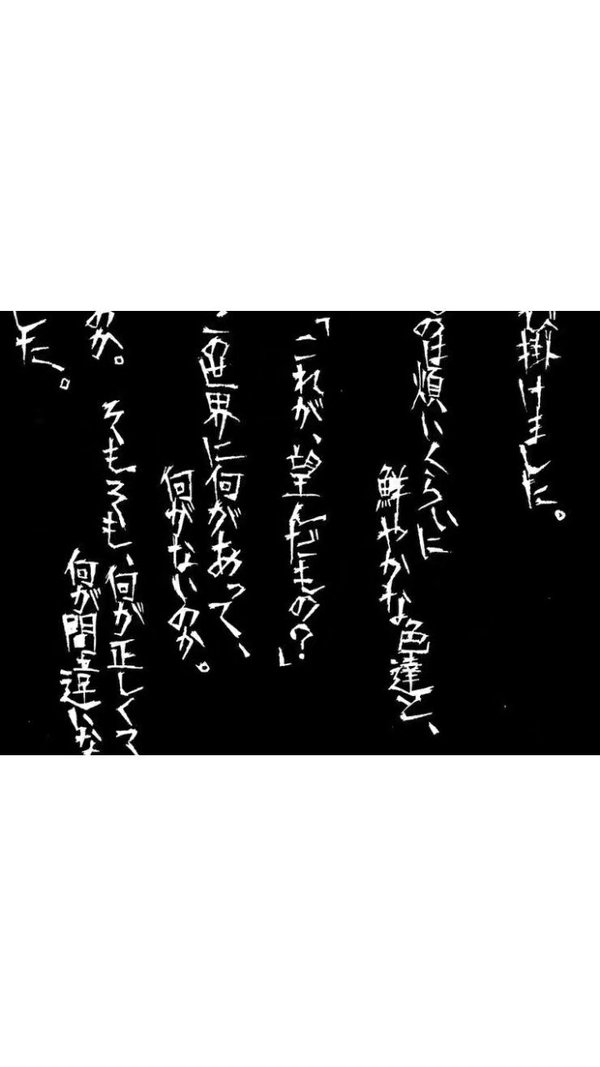 び掛けました。
のは煩いくらいに
鮮やかな色達と、
「これが、望んだもの?」
この世界に何があって、
何がないのか。
のか。 そもそも、何が正しくて
何が間違いな
した。